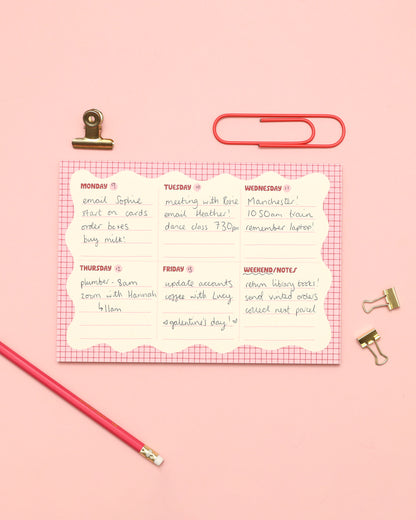 MONDAY 9
email Sophie
start on cards
order boxes
buy milk!
TUESDAY 10
meeting with Rosie
email Heather!
dance class 730pm
WEDNESDAY 11
Manchester!
1050am train
remember laptop!
THURSDAY 12
plumber - 8am
zoom with Hannah
↳ 11am
FRIDAY 13
update accounts
coffee with Lucy
♡galentine's day! ♡
WEEKEND/NOTES
return library books!
send vinted orders
collect next parcel